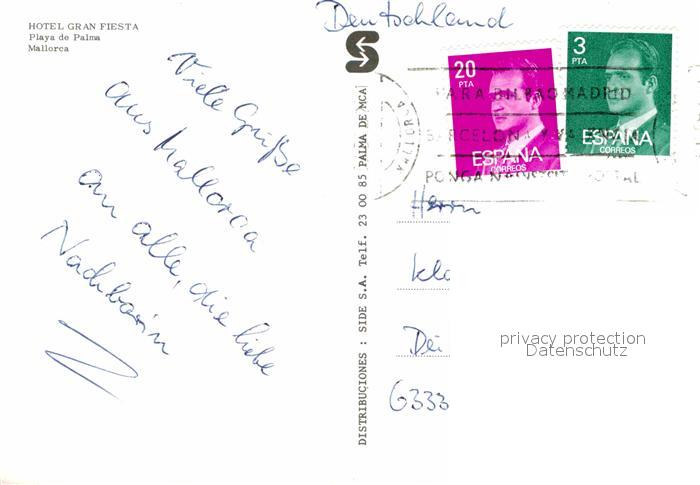 HOTEL GRAN FIESTA
Playa de Palma
Mallorca
Viele Grüße
aus Mallorca
an alle, die liebe
Nachbarin
DISTRIBUCIONES : SIDE S.A. Telf. 23 00 85 PALMA DE MCA
Deutschland
20
PTA
ESPAÑA
CORREOS
3
PTA
ESPAÑA
CORREOS
PARA BILBAO MADRID
BARCELONA
PONGA
MALLORCA
Herrn
Kla
Dei
6333
privacy protection
Datenschutz